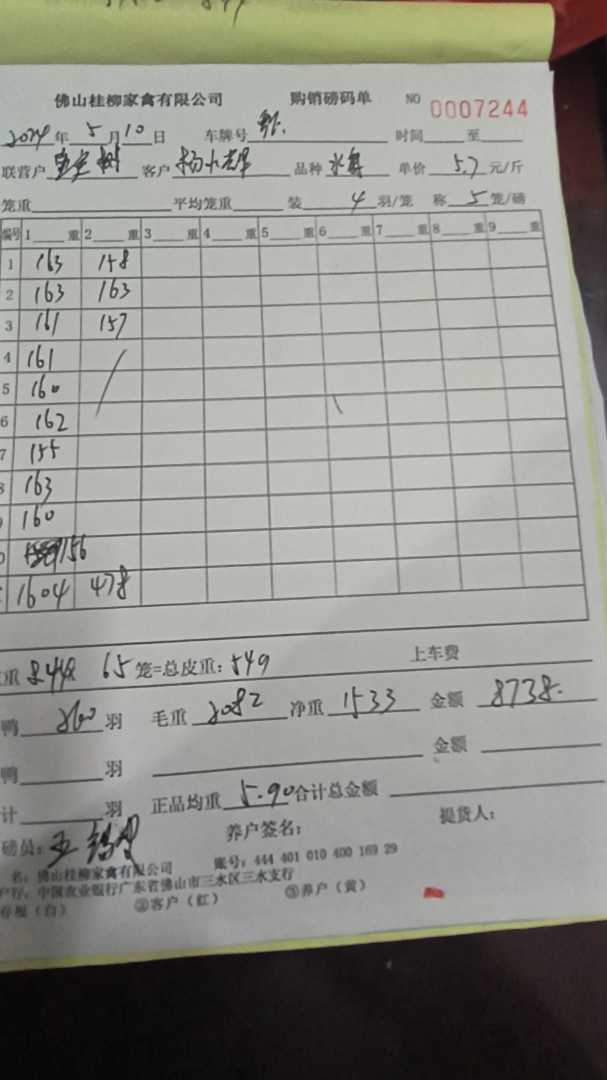 佛山桂柳家禽有限公司 购销磅码单 NO 0007244
2024年5月10日 车牌号 时间 至
联营户 客户 品种 单价 5.7 元/斤
笼重 平均笼重 装 4 羽/笼 称 5 笼/磅
编号 1 重 2 重 3 重 4 重 5 重 6 重 7 重 8 重 9 重
1 163 158
2 163 163
3 161 157
4 161
5 160
6 162
7 155
8 163
160
156
1604 478
重 65 笼=总皮重: 549 上车费
鸭 260 羽 毛重 2082 净重 1533 金额 8738.
鸭 羽 金额
计 羽 正品均重 5.90 合计总金额
磅员: 养户签名: 提货人:
名: 佛山桂柳家禽有限公司 账号: 444 401 010 400 169 29
户行: 中国农业银行广东省佛山市三水区三水支行
存根(白) ②客户(红) ③养户(黄)